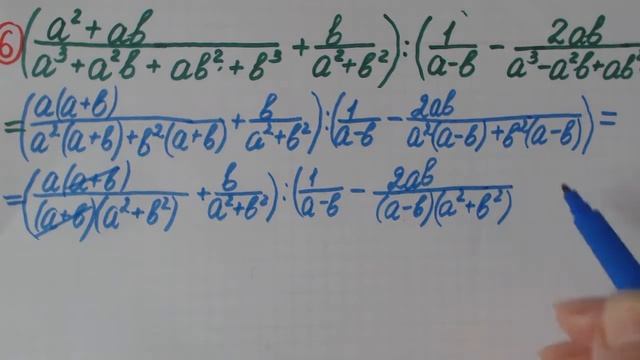 6 ( (a² + ab)/(a³ + a²b + ab² + b³) + b/(a² + b²) ) : ( 1/(a-b) - 2ab/(a³ - a²b + ab²
= ( a(a+b)/(a²(a+b) + b²(a+b)) + b/(a² + b²) ) : ( 1/(a-b) - 2ab/(a²(a-b) + b²(a-b)) ) =
= ( a(a+b)/((a+b)(a² + b²)) + b/(a² + b²) ) : ( 1/(a-b) - 2ab/((a-b)(a² + b²))